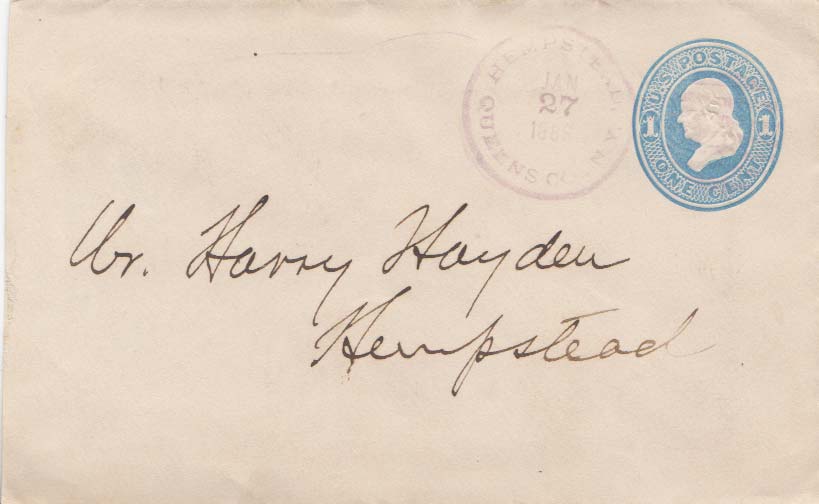 HEMPSTEAD,
JAN
27
QUEENS CO., N.Y.
U.S. POSTAGE
1 1
ONE CENT
Mr. Harry Hayden
Hempstead